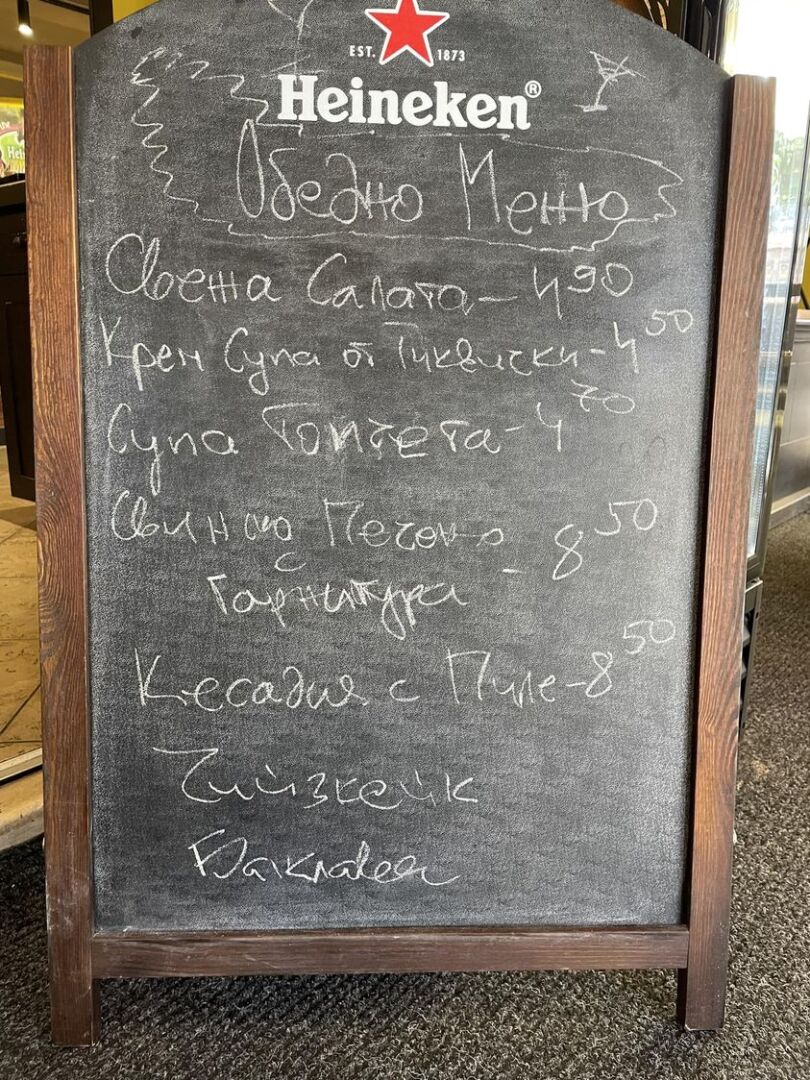 EST. 1873
Heineken®
Обедно Меню
Свежа Салата - 4 90
Крем Супа от Тиквички - 4 50
Супа Топчета - 4 70
Свинско Печено
с - 8 50
Гарнитура
Кесадия с Пиле - 8 50
Чийзкейк
Баклава